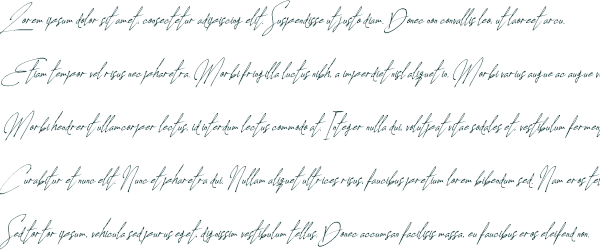 Lorem ipsum dolor sit amet, consectetur adipiscing elit. Suspendisse ut justo diam. Donec non convallis leo, ut laoreet arcu.
Etiam tempor vel risus nec pharetra. Morbi fringilla luctus nibh, a imperdiet nisl aliquet in. Morbi varius augue ac augue v
Morbi hendrerit ullamcorper lectus, id interdum lectus commodo at. Integer nulla dui, volutpat vitae sodales et, vestibulum fermen
Curabitur et nunc elit. Nunc et pharetra dui. Nullam aliquet ultrices risus, faucibus pretium lorem bibendum sed. Nam eros te
Sed tortor ipsum, vehicula sed purus eget, dignissim vestibulum tellus. Donec accumsan facilisis massa, eu faucibus eros eleifend non.